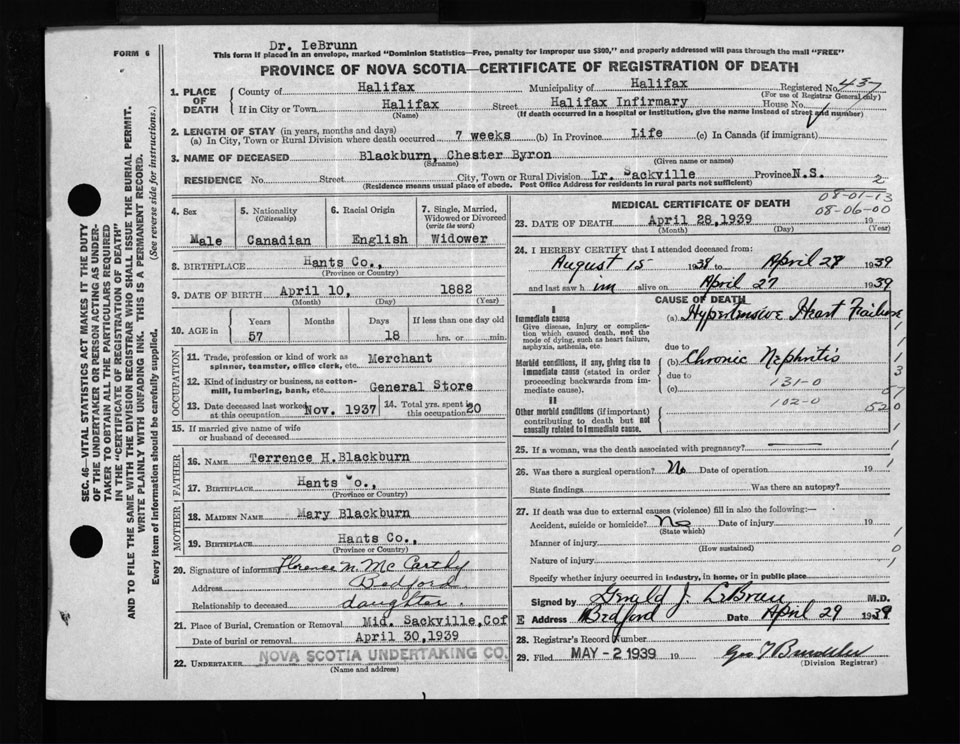 Dr. LeBrunn
FORM 6
This form if placed in an envelope, marked "Dominion Statistics—Free, penalty for improper use $300," and properly addressed will pass through the mail "FREE"
PROVINCE OF NOVA SCOTIA—CERTIFICATE OF REGISTRATION OF DEATH
SEC. 46—VITAL STATISTICS ACT MAKES IT THE DUTY
OF THE UNDERTAKER OR PERSON ACTING AS UNDER-
TAKER TO OBTAIN ALL THE PARTICULARS REQUIRED
IN THE "CERTIFICATE OF REGISTRATION OF DEATH"
AND TO FILE THE SAME WITH THE DIVISION REGISTRAR WHO SHALL ISSUE THE BURIAL PERMIT.
WRITE PLAINLY WITH UNFADING INK. THIS IS A PERMANENT RECORD.
Every item of Information should be carefully supplied. (See reverse side for instructions.)
1. PLACE OF DEATH
County of Halifax Municipality of Halifax Registered No. 437
(For use of Registrar General only)
If in City or Town Halifax Street Halifax Infirmary House No.
(Name) (If death occurred in a hospital or institution, give the name instead of street and number)
2. LENGTH OF STAY (in years, months and days)
(a) In City, Town or Rural Division where death occurred 7 weeks (b) In Province Life (c) In Canada (if immigrant)
3. NAME OF DECEASED Blackburn, Chester Byron
(Surname) (Given name or names)
RESIDENCE No. Street City, Town or Rural Division Lr. Sackville Province N.S.
(Residence means usual place of abode. Post Office Address for residents in rural parts not sufficient)
2
08-01-13
08-06-00
4. Sex Male
5. Nationality (Citizenship) Canadian
6. Racial Origin English
7. Single, Married, Widowed or Divorced (write the word) Widower
8. BIRTHPLACE Hants Co.,
(Province or Country)
9. DATE OF BIRTH April 10, 1882
(Month) (Day) (Year)
10. AGE in Years Months Days If less than one day old
57 18 hrs. or min.
OCCUPATION
11. Trade, profession or kind of work as spinner, teamster, office clerk, etc. Merchant
12. Kind of industry or business, as cotton-mill, lumbering, bank, etc. General Store
13. Date deceased last worked at this occupation Nov. 1937
14. Total yrs. spent in this occupation 20
15. If married give name of wife or husband of deceased
FATHER
16. NAME Terrence H. Blackburn
17. BIRTHPLACE Hants Co.,
(Province or Country)
MOTHER
18. MAIDEN NAME Mary Blackburn
19. BIRTHPLACE Hants Co.,
(Province or Country)
20. Signature of informant Florence M. McCarthy
Address Bedford
Relationship to deceased daughter.
21. Place of Burial, Cremation or Removal Mid. Sackville, Cof
Date of burial or removal April 30, 1939
22. UNDERTAKER NOVA SCOTIA UNDERTAKING CO.
(Name and address)
MEDICAL CERTIFICATE OF DEATH
23. DATE OF DEATH April 28, 1939 19
(Month) (Day) (Year)
24. I HEREBY CERTIFY that I attended deceased from:
August 15 1938 to April 28 1939
and last saw him alive on April 27 1939
CAUSE OF DEATH
I
Immediate cause (a) Hypertensive Heart Failure
Give disease, injury or complica-
tion which caused death, not the
mode of dying, such as heart failure,
asphyxia, asthenia, etc.
due to
Morbid conditions, if any, giving rise to
immediate cause (stated in order
proceeding backwards from im-
mediate cause).
(b) Chronic Nephritis
due to 131-0
(c)
102-0
II
Other morbid conditions (if important)
contributing to death but not
causally related to immediate cause.
520
25. If a woman, was the death associated with pregnancy?
26. Was there a surgical operation? No Date of operation 19
State findings Was there an autopsy?
27. If death was due to external causes (violence) fill in also the following:—
Accident, suicide or homicide? No Date of injury 19
(State which)
Manner of injury
(How sustained)
Nature of injury
Specify whether injury occurred in industry, in home, or in public place
Signed by Gerald J. LeBrun M.D.
E Address Bedford Date April 29 1939
28. Registrar's Record Number
29. Filed MAY -2 1939 19
(Division Registrar)